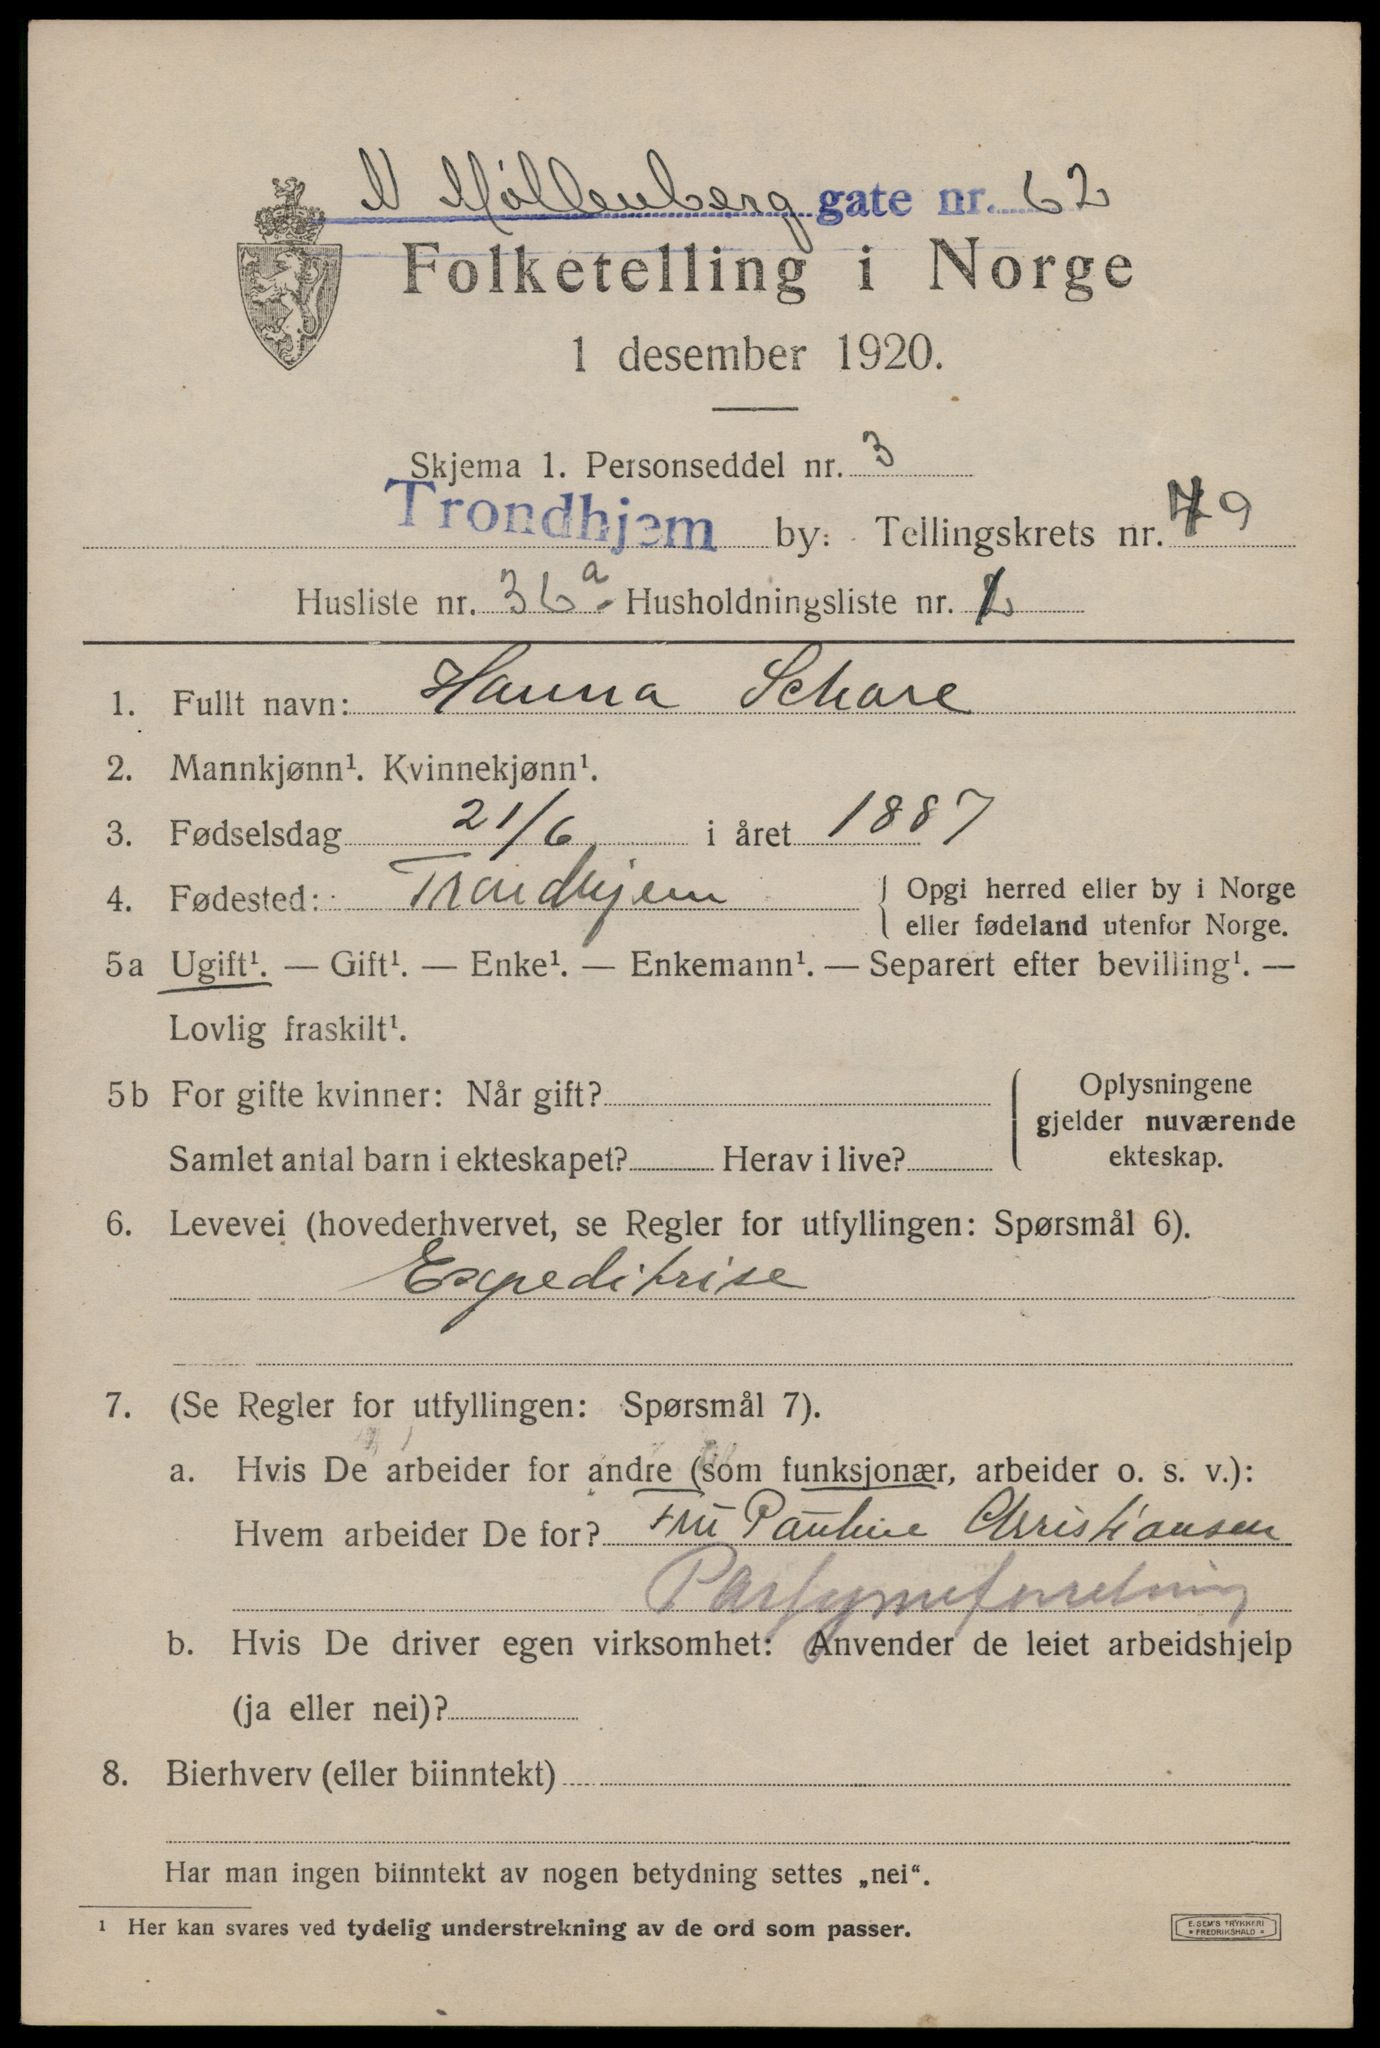 N Møllenberg gate nr. 62
Folketelling i Norge
1 desember 1920.
Skjema 1. Personseddel nr. 3
Trondhjem by: Tellingskrets nr. 9
Husliste nr. 36a. Husholdningsliste nr. 2
1. Fullt navn: Hanna Schare
2. Mannkjønn¹. Kvinnekjønn¹.
3. Fødselsdag 21/6 i året 1887
4. Fødested: Trondhjem { Opgi herred eller by i Norge
eller fødeland utenfor Norge.
5a Ugift¹. — Gift¹. — Enke¹. — Enkemann¹. — Separert efter bevilling¹. —
Lovlig fraskilt¹.
5b For gifte kvinner: Når gift? { Oplysningene
gjelder nuværende
Samlet antal barn i ekteskapet? Herav i live? ekteskap.
6. Levevei (hovederhvervet, se Regler for utfyllingen: Spørsmål 6).
Expeditrise
7. (Se Regler for utfyllingen: Spørsmål 7).
a. Hvis De arbeider for andre (som funksjonær, arbeider o. s. v.):
Hvem arbeider De for? Fru Pauline Christiansen
Parfymeforretning
b. Hvis De driver egen virksomhet: Anvender de leiet arbeidshjelp
(ja eller nei)?
8. Bierhverv (eller biinntekt)
Har man ingen biinntekt av nogen betydning settes „nei“.
¹ Her kan svares ved tydelig understrekning av de ord som passer.
E. SEM'S TRYKKERI
* FREDRIKSHALD *